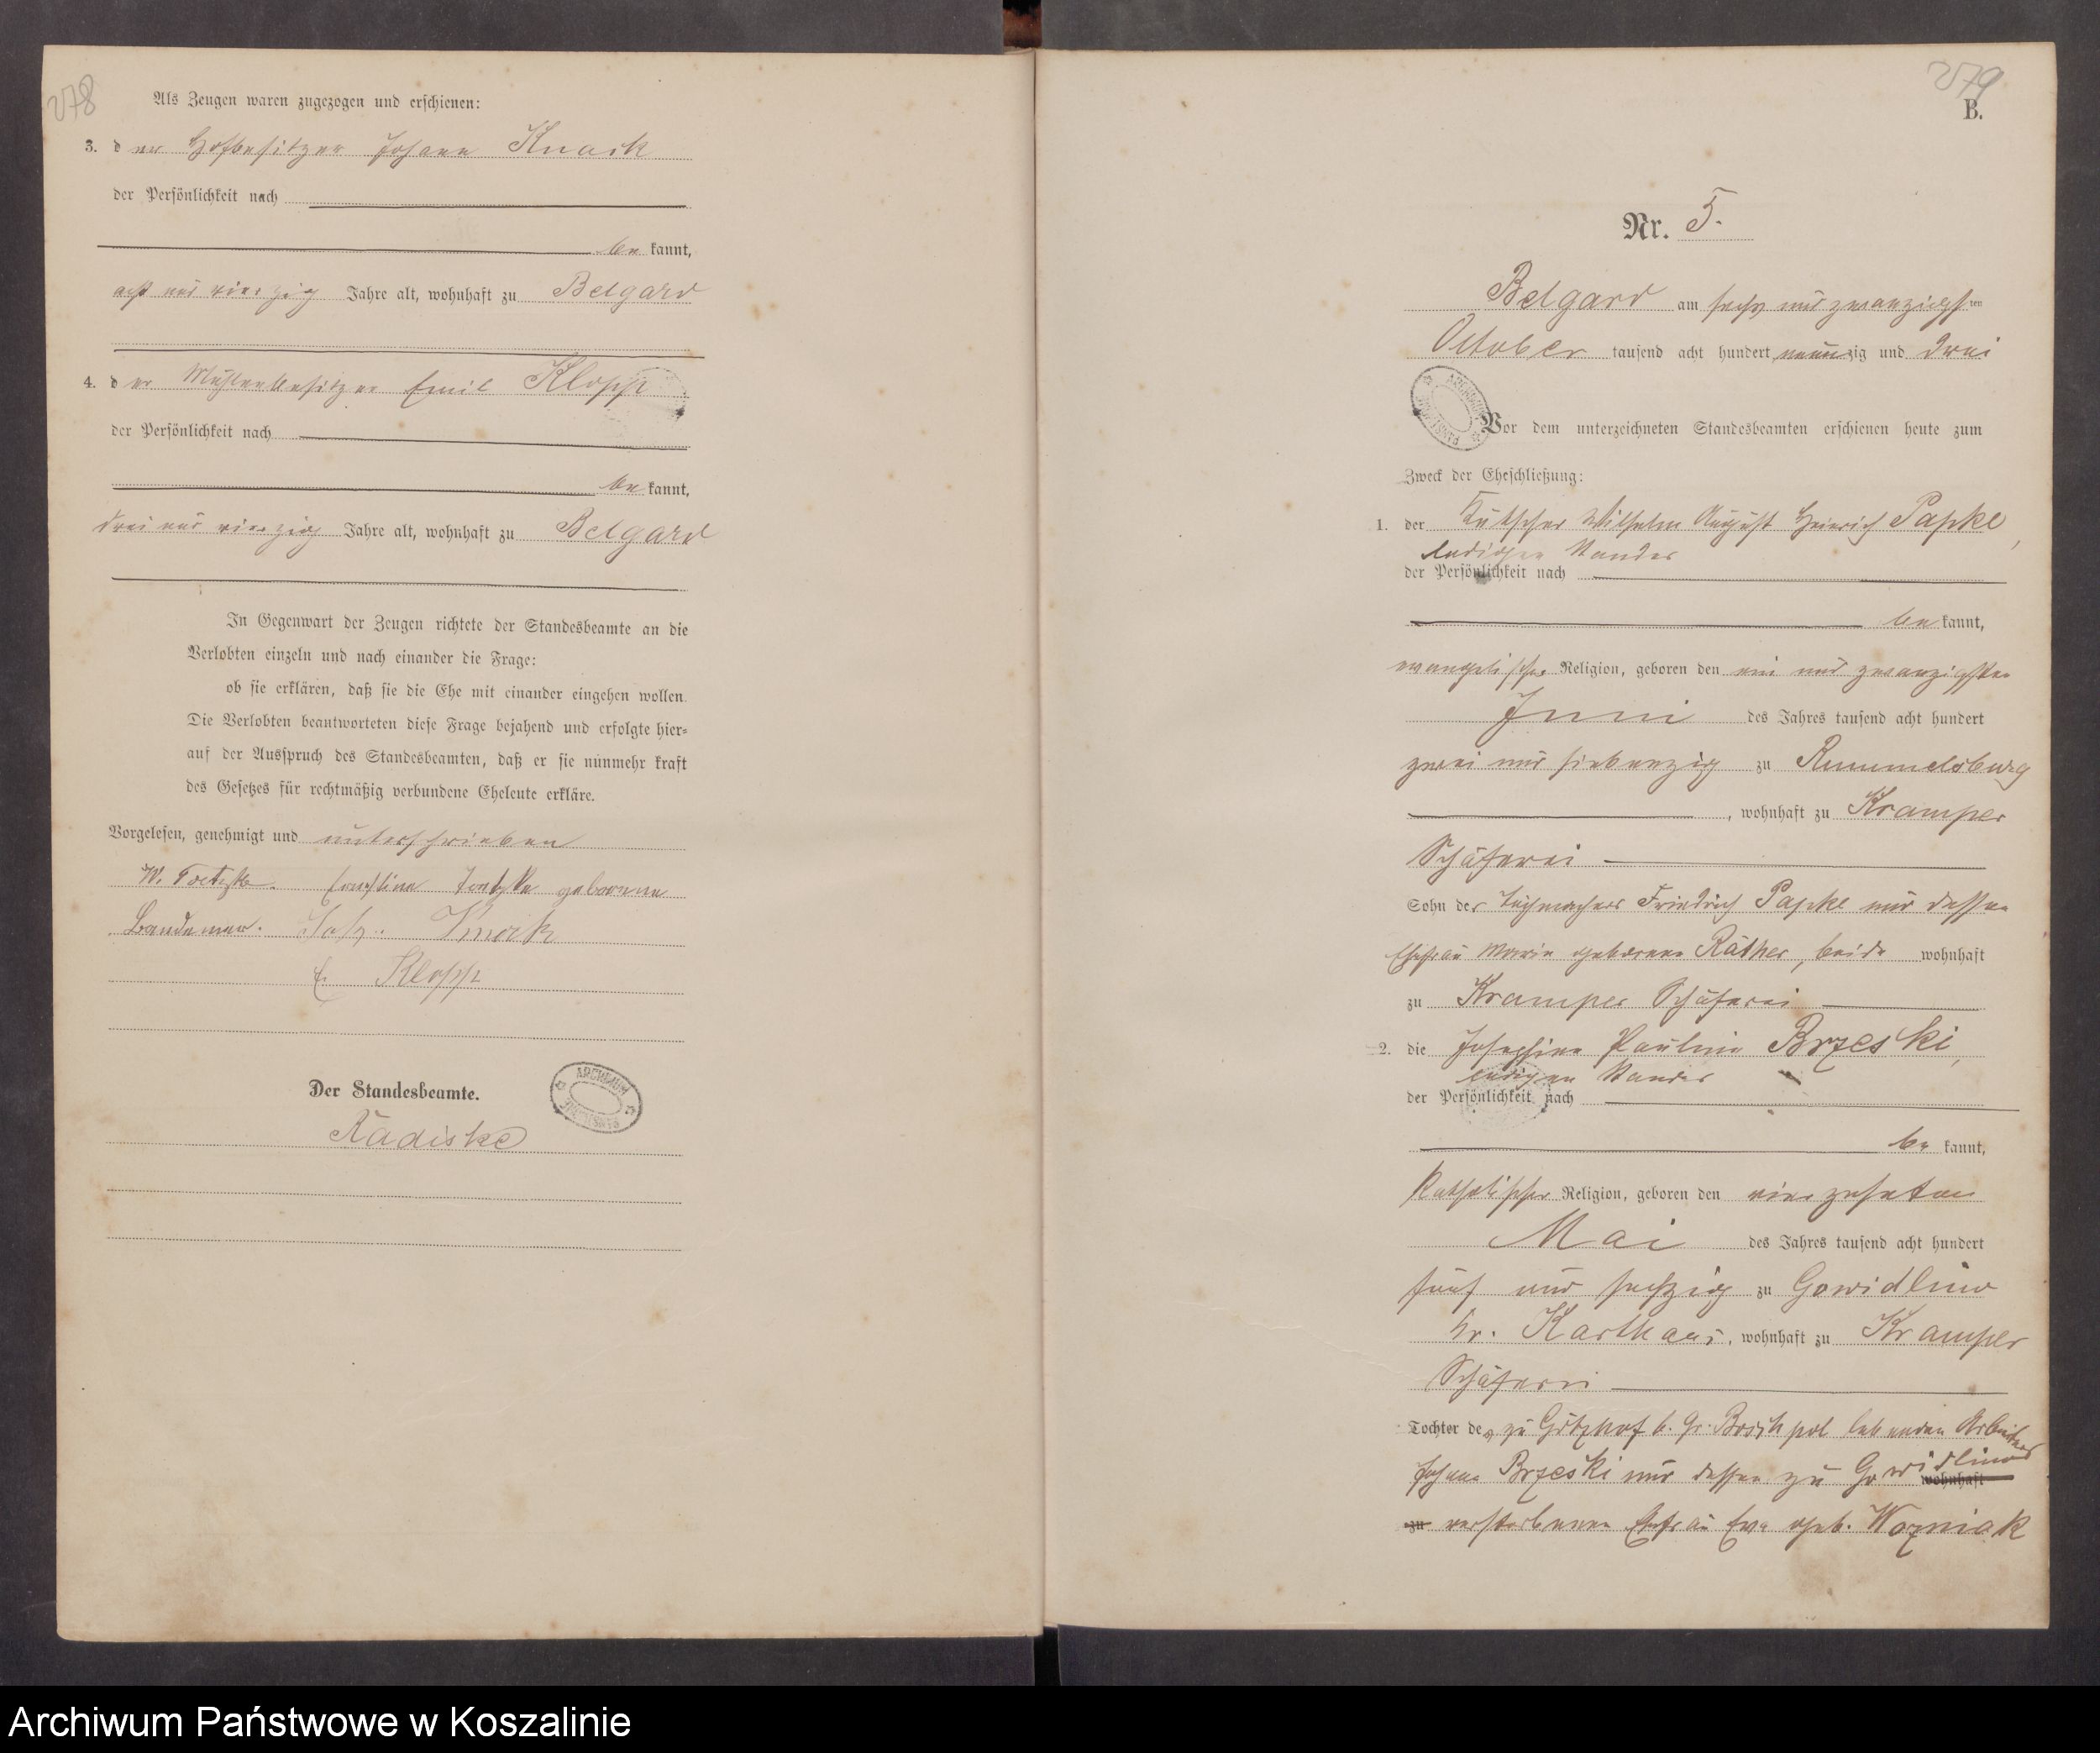 278
Als Zeugen waren zugezogen und erschienen:
3. der Hofbesitzer Johann Knack
der Persönlichkeit nach
be kannt,
acht und vierzig Jahre alt, wohnhaft zu Belgard
4. der Mühlenbesitzer Emil Klopp
der Persönlichkeit nach
be kannt,
drei und vierzig Jahre alt, wohnhaft zu Belgard
In Gegenwart der Zeugen richtete der Standesbeamte an die
Verlobten einzeln und nach einander die Frage:
ob sie erklären, daß sie die Ehe mit einander eingehen wollen.
Die Verlobten beantworteten diese Frage bejahend und erfolgte hier-
auf der Ausspruch des Standesbeamten, daß er sie nunmehr kraft
des Gesetzes für rechtmäßig verbundene Eheleute erkläre.
Vorgelesen, genehmigt und unterschrieben
W. geborene
Bandemer. Joh. Knack
E. Klopp
Der Standesbeamte.
Radiske
ARCHIWUM
279
B.
Nr. 5.
Belgard am sechs und zwanzigsten
October tausend acht hundert neunzig und drei
ARCHIWUM
Vor dem unterzeichneten Standesbeamten erschienen heute zum
Zweck der Eheschließung:
1. der Kutscher Wilhelm August Heinrich Papke,
ledigen Standes
der Persönlichkeit nach
be kannt,
evangelischer Religion, geboren den ein und zwanzigsten
Juni des Jahres tausend acht hundert
zwei und siebenzig zu Rummelsburg
, wohnhaft zu Kramper
Schäferei
Sohn des Tuchmachers Friedrich Papke und dessen
Ehefrau Marie geborene Räther, beide wohnhaft
zu Kramper Schäferei
2. die Josephine Pauline Brzeski,
ledigen Standes
der Persönlichkeit nach
be kannt,
katholischer Religion, geboren den vierzehnten
Mai des Jahres tausend acht hundert
fünf und sechzig zu Gowidlino
Kr. Karthaus, wohnhaft zu Kramper
Schäferei
Tochter des zu b. Gr. Boschpol lebenden Arbeiters
Johann Brzeski und dessen zu Gowidlino wohnhaft
zu verstorbenen Ehefrau Eva geb. Wozniak
Archiwum Państwowe w Koszalinie